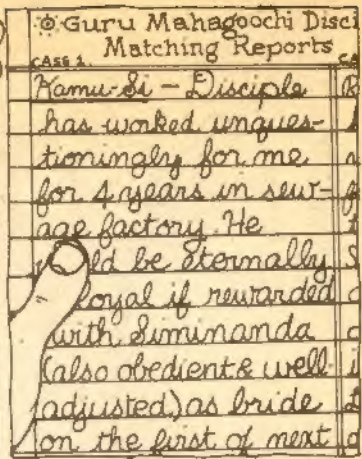 Guru Mahagoochi Disci
Matching Reports
CASE 1.
Kamu-Si – Disciple
has worked unques-
tioningly for me
for 4 years in sew-
age factory. He
ld be eternally
loyal if rewarded
with Siminanda
(also obedient & well
adjusted) as bride
on the first of next